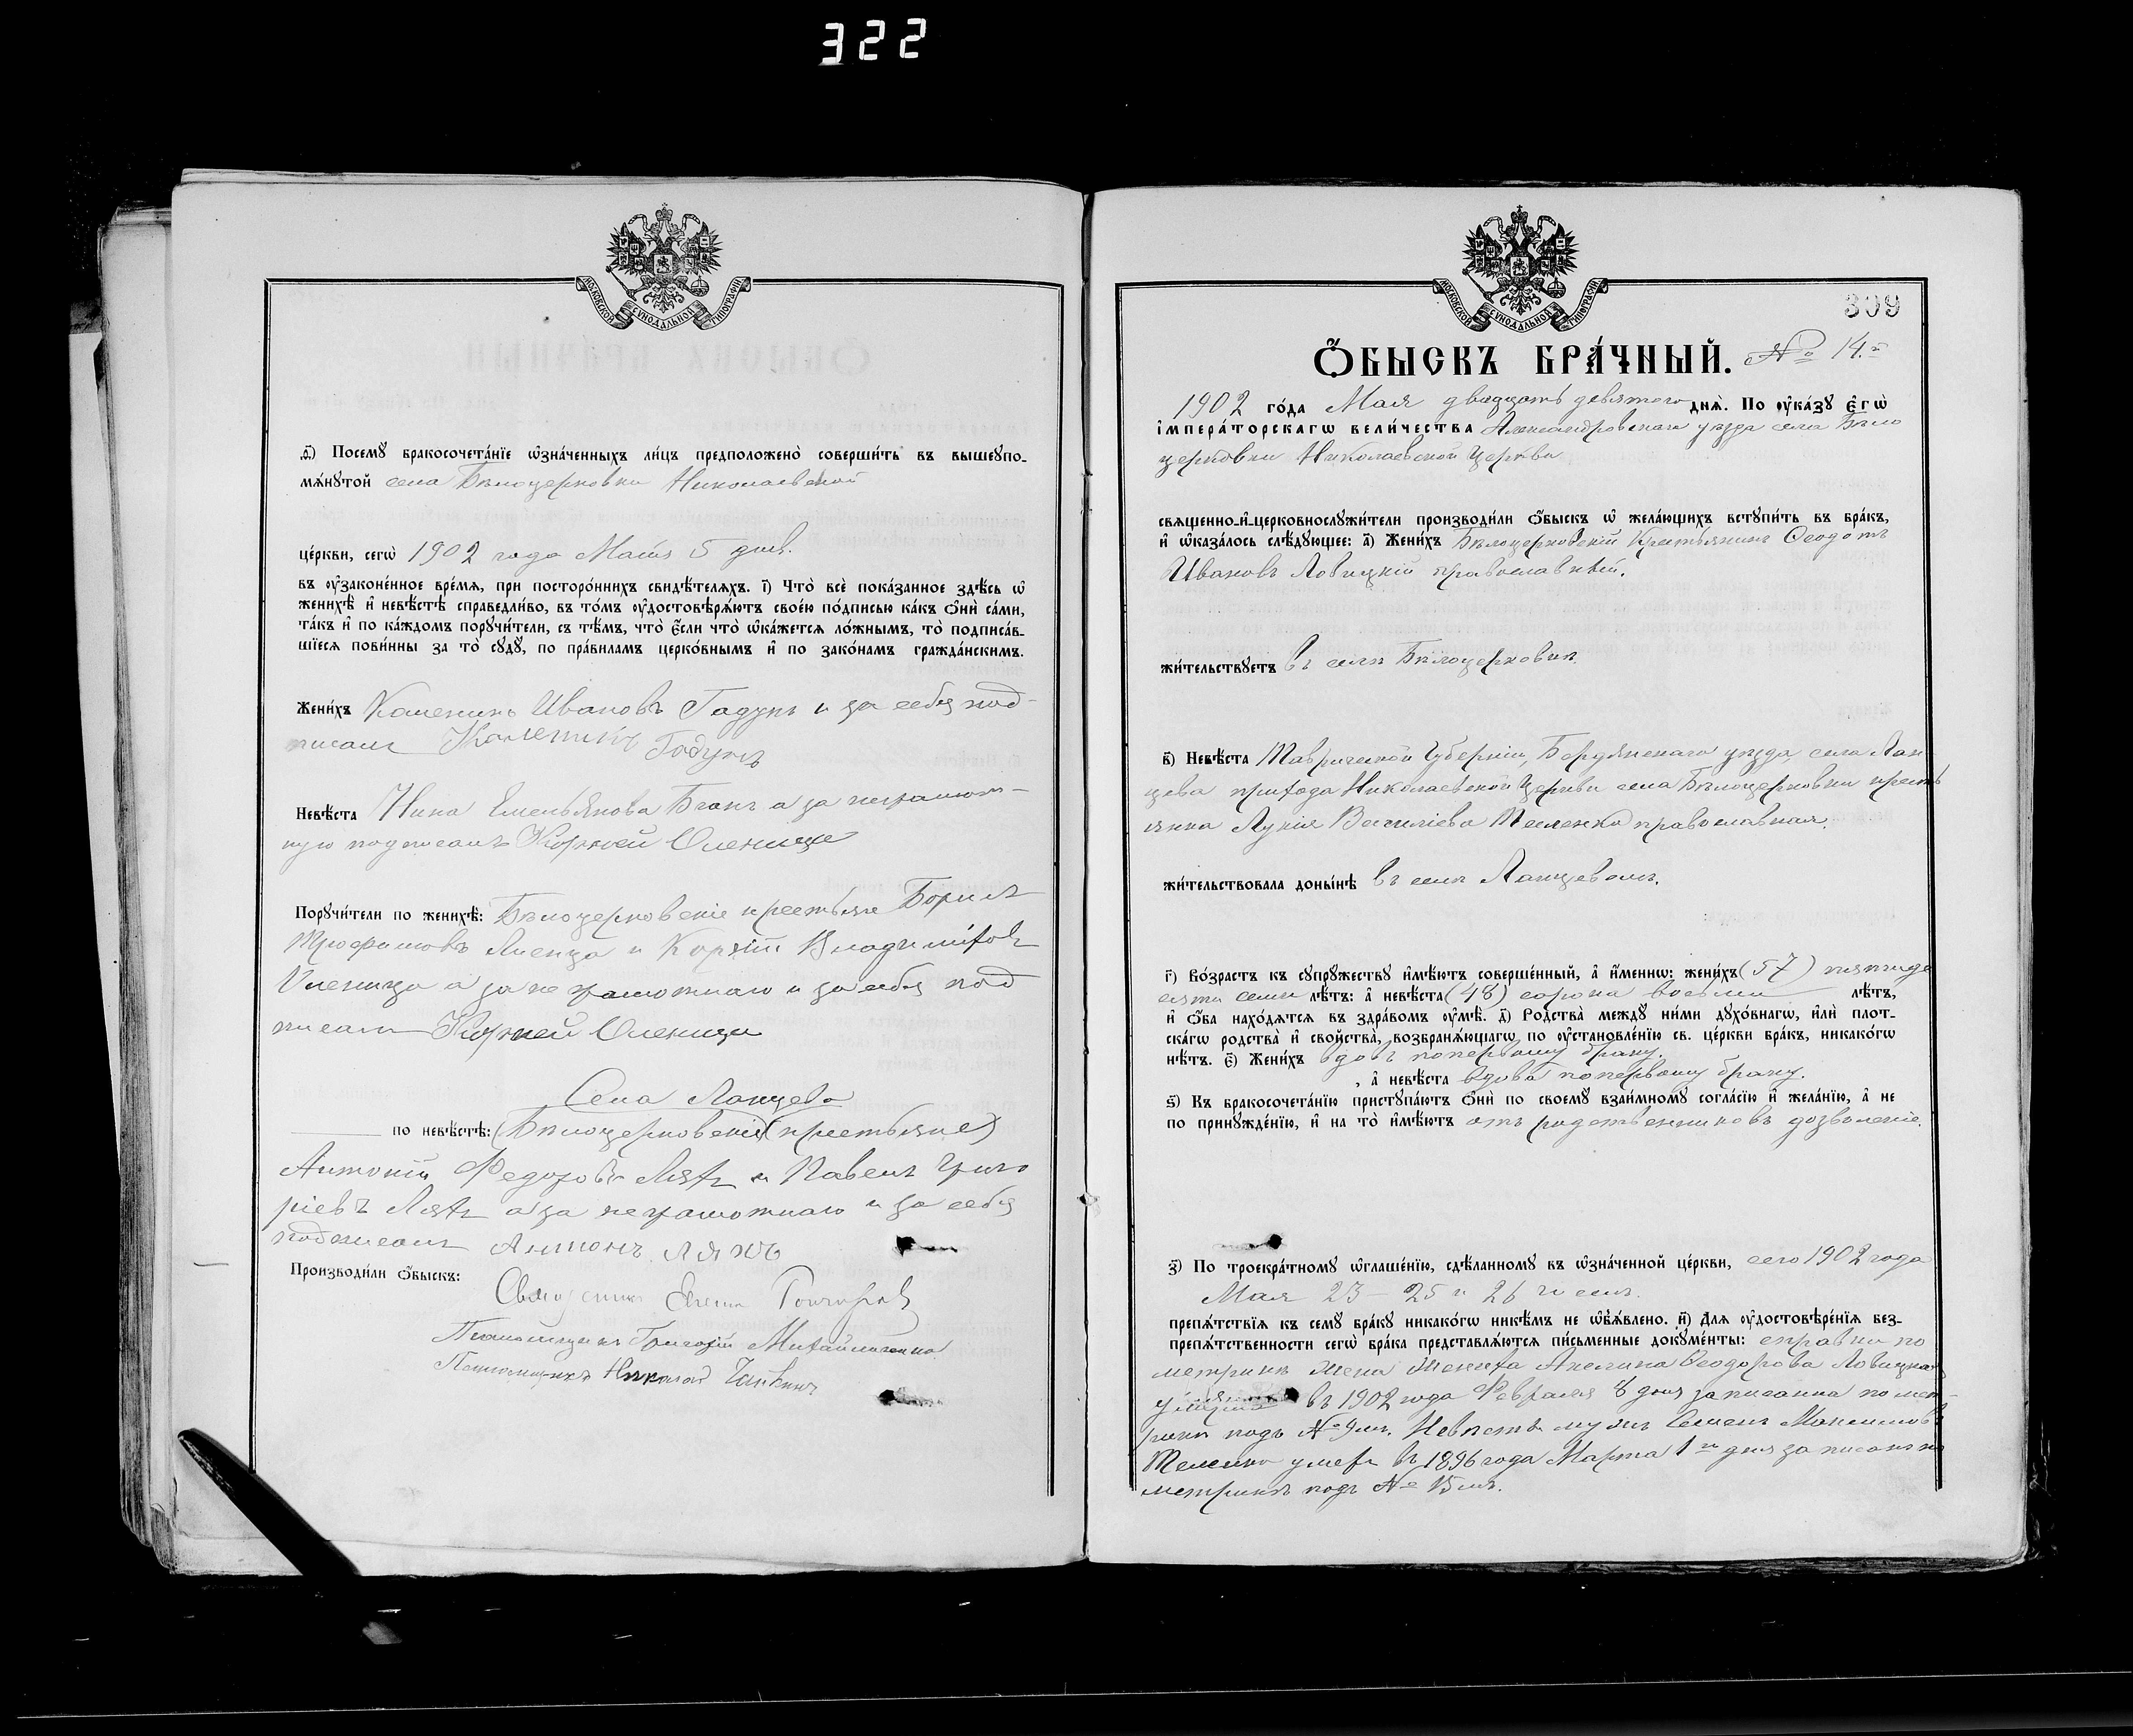 322
МОСКОВСКОЙ СѴНОДАЛЬНОЙ ТИПОГРАФІИ
ѳ҃) Посемꙋ̀ бракосочета́нїе ѡ҆зна́ченныхъ ли́цъ предположено̀ соверши́ть въ вышеꙋпо-
мѧ́нꙋтой села Бѣлоцерковки Николаевской
це́ркви, сегѡ̀ 1902 года Маія 5 дня.
въ ᲂу҆зако́не́нное вре́мѧ, при посторо́ннихъ свидѣ́телѧхъ. і҃) Что̀ всѐ пока́занное здѣ́сь ѡ҆
женихѣ̀ и҆ невѣ́стѣ справедли́во, въ то́мъ ᲂу҆достовѣрѧ́ютъ свое́ю по́дписью ка́къ ѻ҆нѝ са́ми,
та́къ и҆ по ка́ждомъ порꙋчи́тели, съ тѣ́мъ, что̀ є҆́сли что̀ ѡ҆ка́жетсѧ ло́жнымъ, то̀ подписа́в-
шїесѧ пови́нны за то̀ сꙋдꙋ̀, по пра́виламъ церко́внымъ и҆ по зако́намъ гражда́нскимъ.
Жени́хъ Калениикъ Ивановъ Гадунъ и за себя под-
писалъ Калениикъ Гадунъ
Невѣ́ста Нина Емельянова Бганъ а за неграмот-
ную подписалъ Корней Оленица
Порꙋчи́тели по женихѣ̀: Бѣлоцерковскіе крестьяне Борисъ
Трофимовъ и Корнѣй Владиміровъ
Оленица а за не грамотнаго и за себя под
писалъ Корней Оленица
Села Ланцева
по невѣ́стѣ: (Бѣлоцерковскіе) (крестьяне)
Антоній Федоровъ Ляхъ и Павелъ Григо
ріевъ Ляхъ а за неграмотнаго и за себя
подписалъ Антонъ Ляхъ
Производи́ли ѻ҆́быскъ:
Священникъ Гончаровъ
Псаломщикъ Григорій Михайличенко
Псаломщикъ Николай
МОСКОВСКОЙ СѴНОДАЛЬНОЙ ТИПОГРАФІИ
309
Ѻ҆́БЫСКЪ БРА́ЧНЫЙ. № 14.й
1902 го́да Мая двадцать девятого днѧ̀. По ᲂу҆ка́зꙋ Є҆гѡ̀
І҆мпера́торскагѡ вели́чества Александровскаго уѣзда села Бѣло
церковки Николаевской Церкви
свѧщенно-и҆-церковнослꙋжи́тели производи́ли ѻ҆́быскъ ѡ҆ жела́ющихъ встꙋпи́ть въ бра́къ,
и҆ ѡ҆каза́лось слѣ́дꙋющее: а҃) Жени́хъ Бѣлоцерковскій Крестьянинъ Ѳеодотъ
Ивановъ Ловицкій православный.
жи́тельствꙋетъ въ селѣ Бѣлоцерковкѣ.
в҃) Невѣ́ста Таврической Губерніи, Бердянскаго уѣзда, села Лан
цева прихода Николаевской Церкви села Бѣлоцерковки кресть
янка Лукія Василіева Теленко православная.
жи́тельствовала доны́нѣ въ селѣ Ланцевомъ.
г҃) Во́зрастъ къ сꙋпрꙋ́жествꙋ и҆мѣ́ютъ соверше́нный, а҆ и҆́меннѡ: жени́хъ (57) пятиде
сяти семи лѣ́тъ: а҆ невѣ́ста (48) сорока восьми лѣ́тъ,
и҆ ѻ҆́ба нахо́дѧтсѧ въ здра́вомъ ᲂу҆мѣ̀. д҃) Родства̀ междꙋ̀ ни́ми дꙋхо́внагѡ, и҆лѝ плот-
ска́гѡ родства̀ и҆ сво́йства, возбранѧ́ющагѡ по ᲂу҆становле́нїю св. це́ркви бра́къ, никако́гѡ
нѣ́тъ. є҃) Жени́хъ вдовъ поперьвому браку.
, а҆ невѣ́ста вдова поперьвому браку.
ѕ҃) Къ бракосочета́нїю пристꙋпа́ютъ ѻ҆нѝ по своемꙋ̀ взаи́мномꙋ согла́сїю и҆ жела́нїю, а҆ не
по принꙋжде́нїю, и҆ на то̀ и҆мѣ́ютъ отъ родственниковъ дозволеніе.
з҃) По троекра́тномꙋ ѡ҆глаше́нїю, сдѣ́ланномꙋ въ ѡ҆зна́ченной це́ркви, сего 1902 года
Мая 23 – 25 и 26 чиселъ.
препѧ́тствїѧ къ семꙋ̀ бра́кꙋ никако́гѡ никѣ́мъ не ѡ҆б̾ѧ́влено. и҃) Длѧ ᲂу҆достовѣре́нїѧ без-
препѧ́тственности сегѡ̀ бра́ка представлѧ́ютсѧ пи́сьменные докꙋме́нты: справки по
метрикѣ жена жениха Акилина Ѳеодорова Ловицкая
въ 1902 года Февраля 8 дня записанна по мет-
рики подъ № 9мъ. Невѣсты мужъ Семенъ Максимовъ
Теленко умеръ въ 1896 года Марта 1го дня записанъ по
метрикѣ подъ № 15мъ.